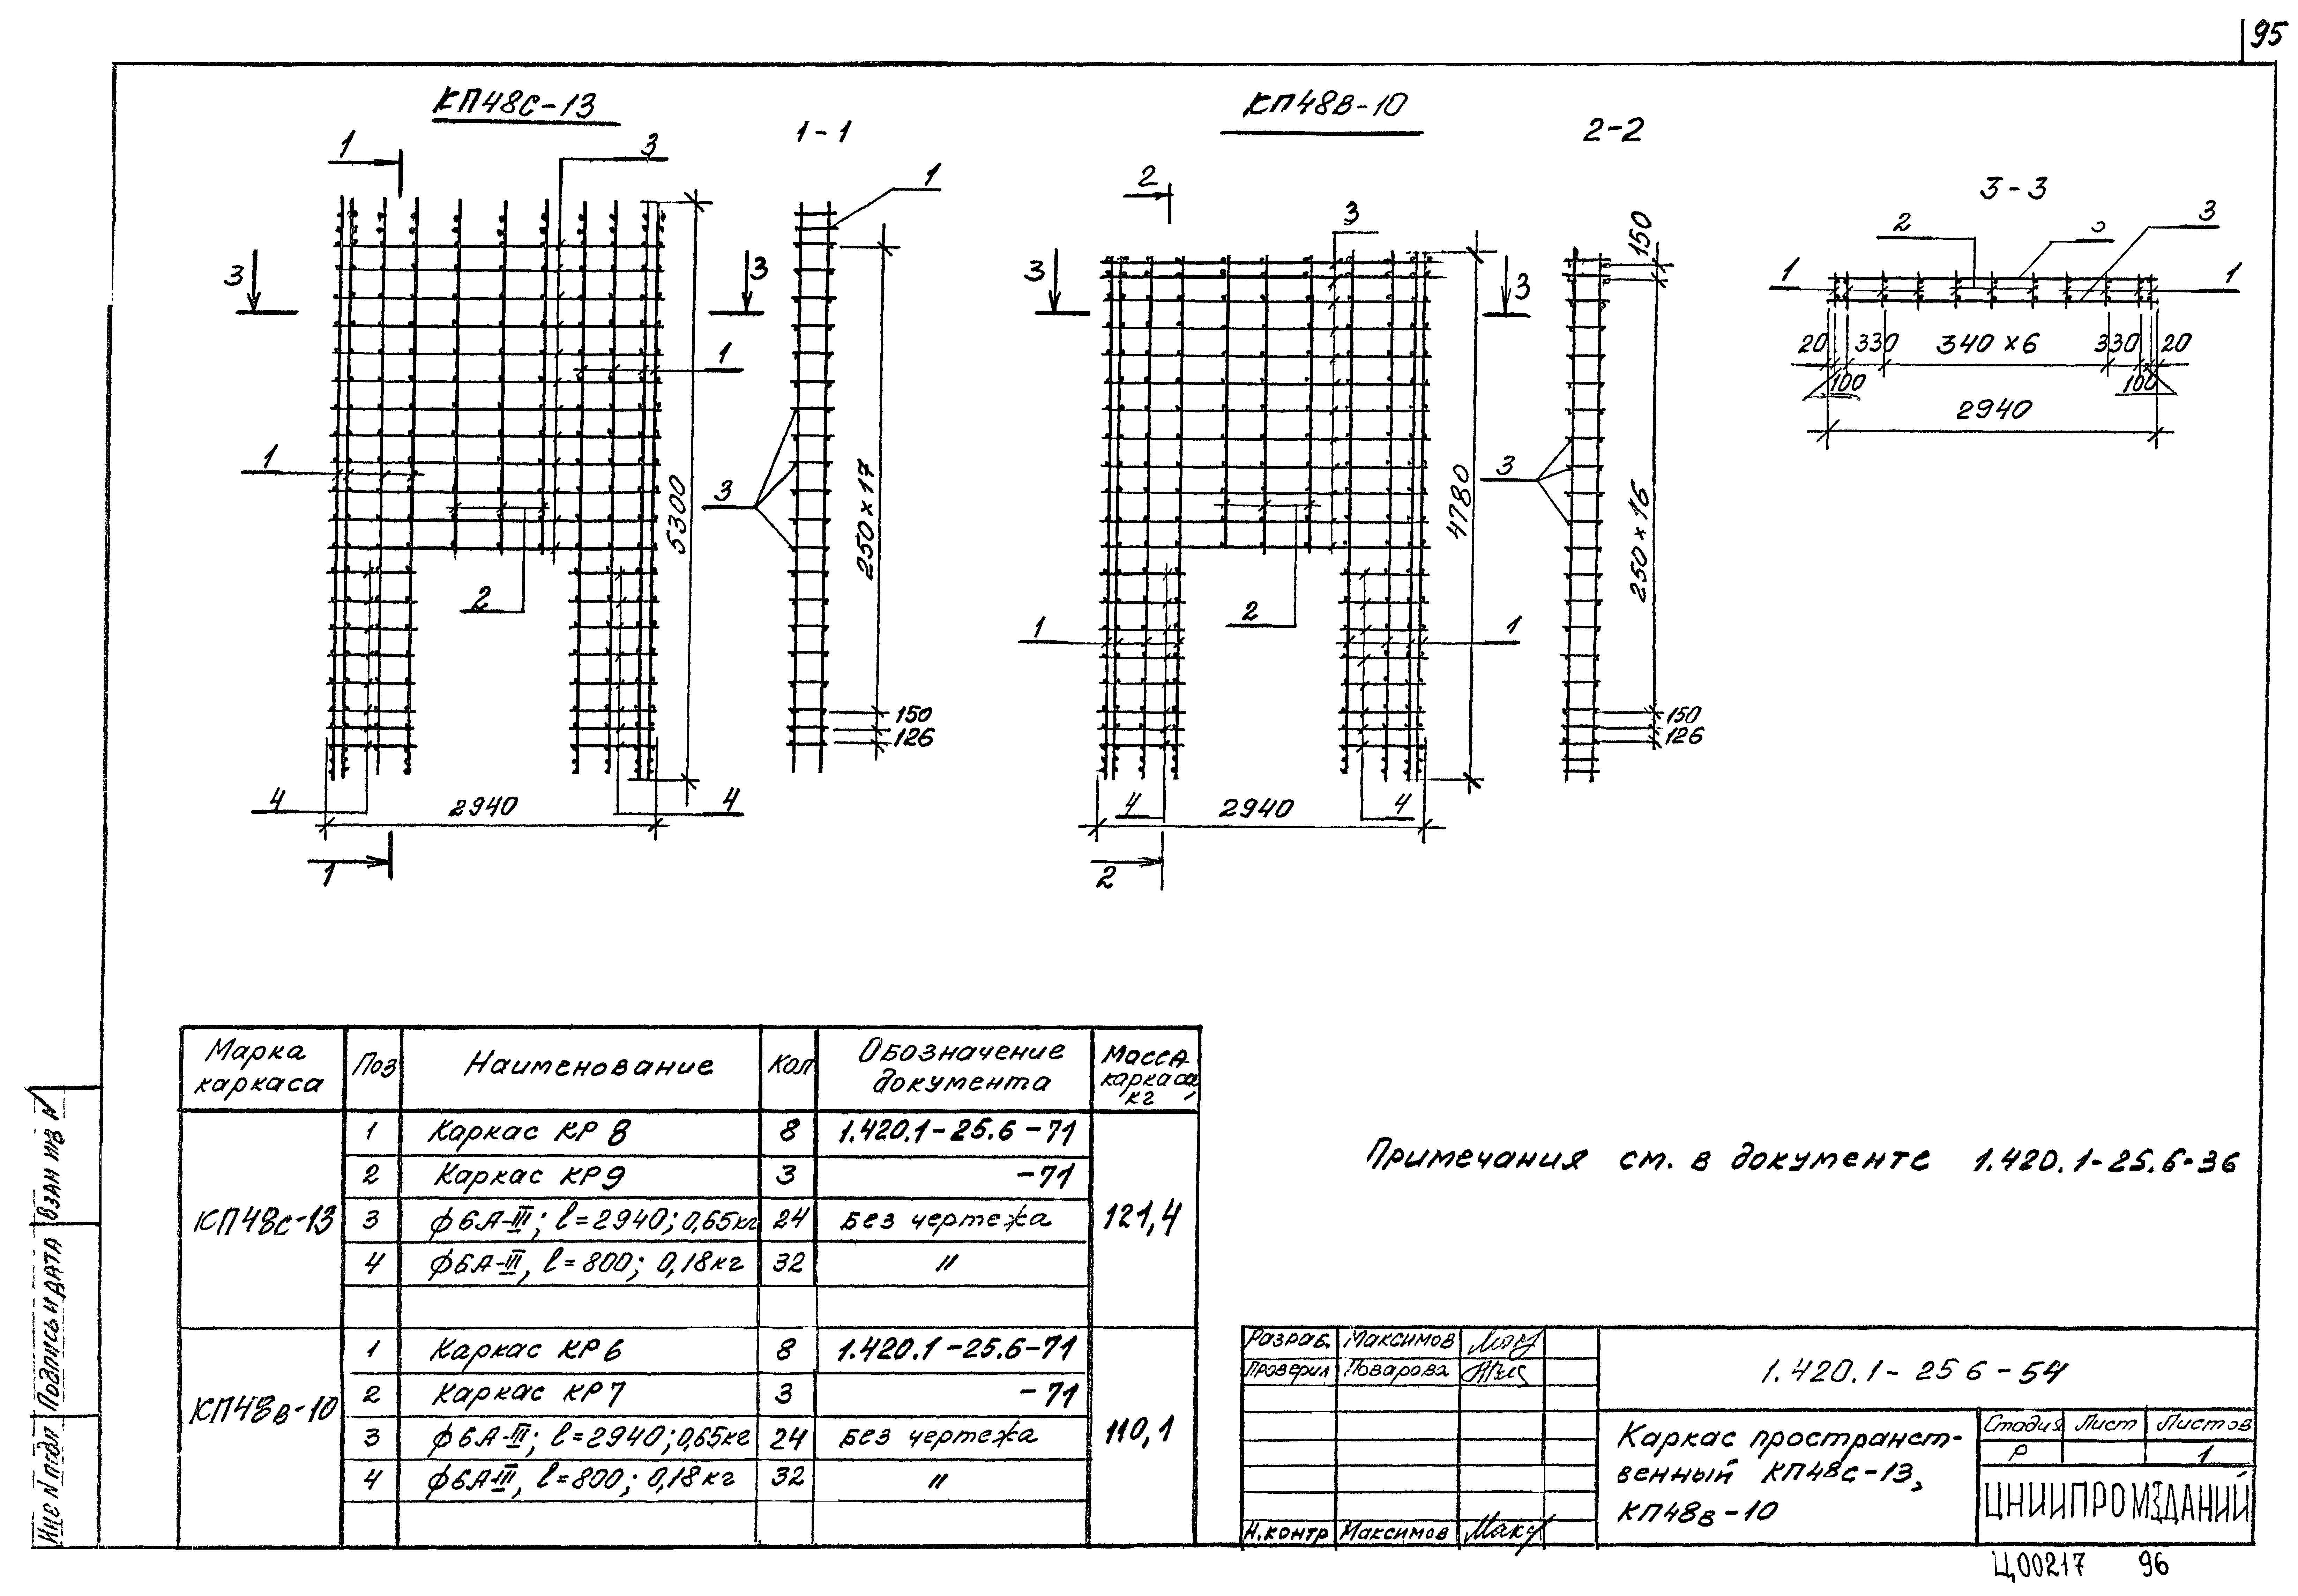 95
КП48С-13
1-1
КП48В-10
2-2
3-3
1
3
1
3
3
1
1
2
3
4
4
2940
5300
1
250×17
150
126
2
3
3
3
1
1
2
3
4
4
2940
4780
2
150
250×16
150
126
2
3
1
1
20
330
340×6
330
20
100
100
2940
Марка каркаса
Поз
Наименование
Кол
Обозначение документа
Масса каркаса, кг
КП48с-13
1 Каркас КР8 8 1.420.1-25.6-71
2 Каркас КР9 3 -71
3 ф6А-III; l=2940; 0,65кг 24 Без чертежа
4 ф6А-III, l=800; 0,18кг 32 "
121,4
КП48в-10
1 Каркас КР6 8 1.420.1-25.6-71
2 Каркас КР7 3 -71
3 ф6А-III; l=2940; 0,65кг 24 Без чертежа
4 ф6А-III, l=800; 0,18кг 32 "
110,1
Примечания см. в документе 1.420.1-25.6-36
Разраб. Максимов
Проверил Поварова
Н.контр Максимов
1.420.1-25 6-54
Каркас пространст-
венный КП48с-13,
КП48в-10
Стадия Лист Листов
Р 1
ЦНИИПРОМЗДАНИЙ
Ц00217 96
Инв N подл
Подпись и дата
Взам инв N